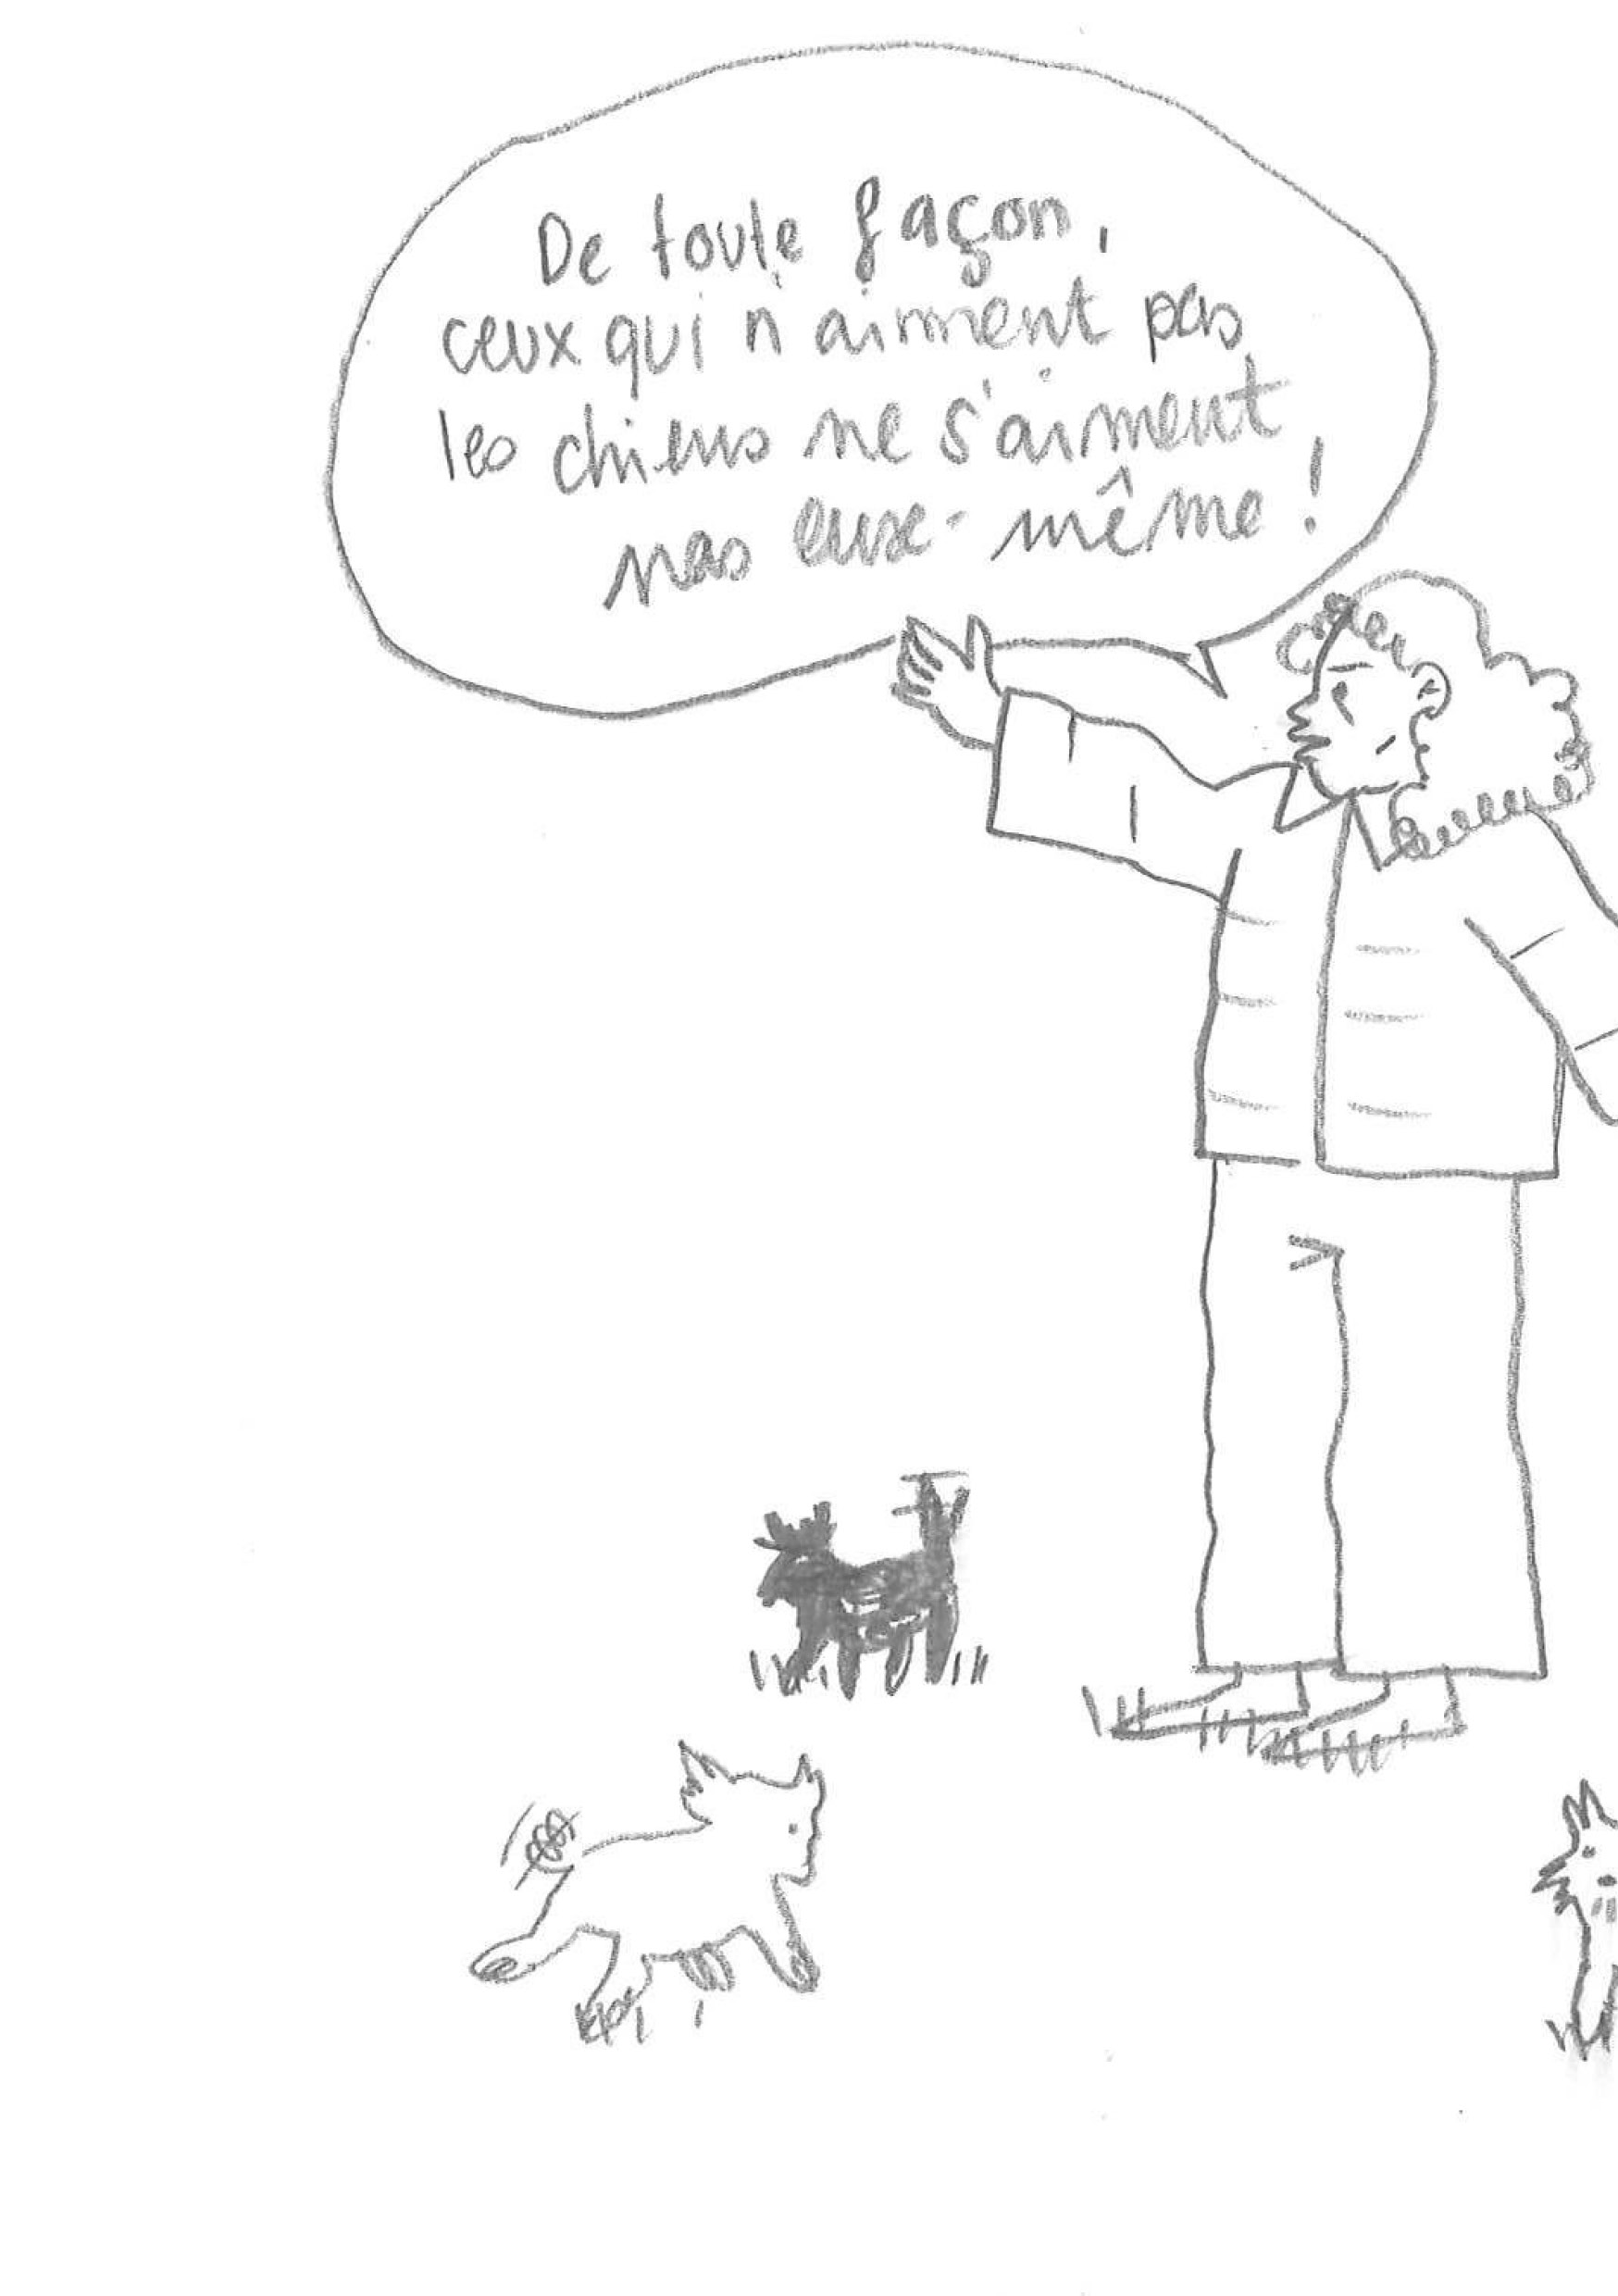 De toute façon,
ceux qui n'aiment pas
les chiens ne s'aiment
pas eux-même !